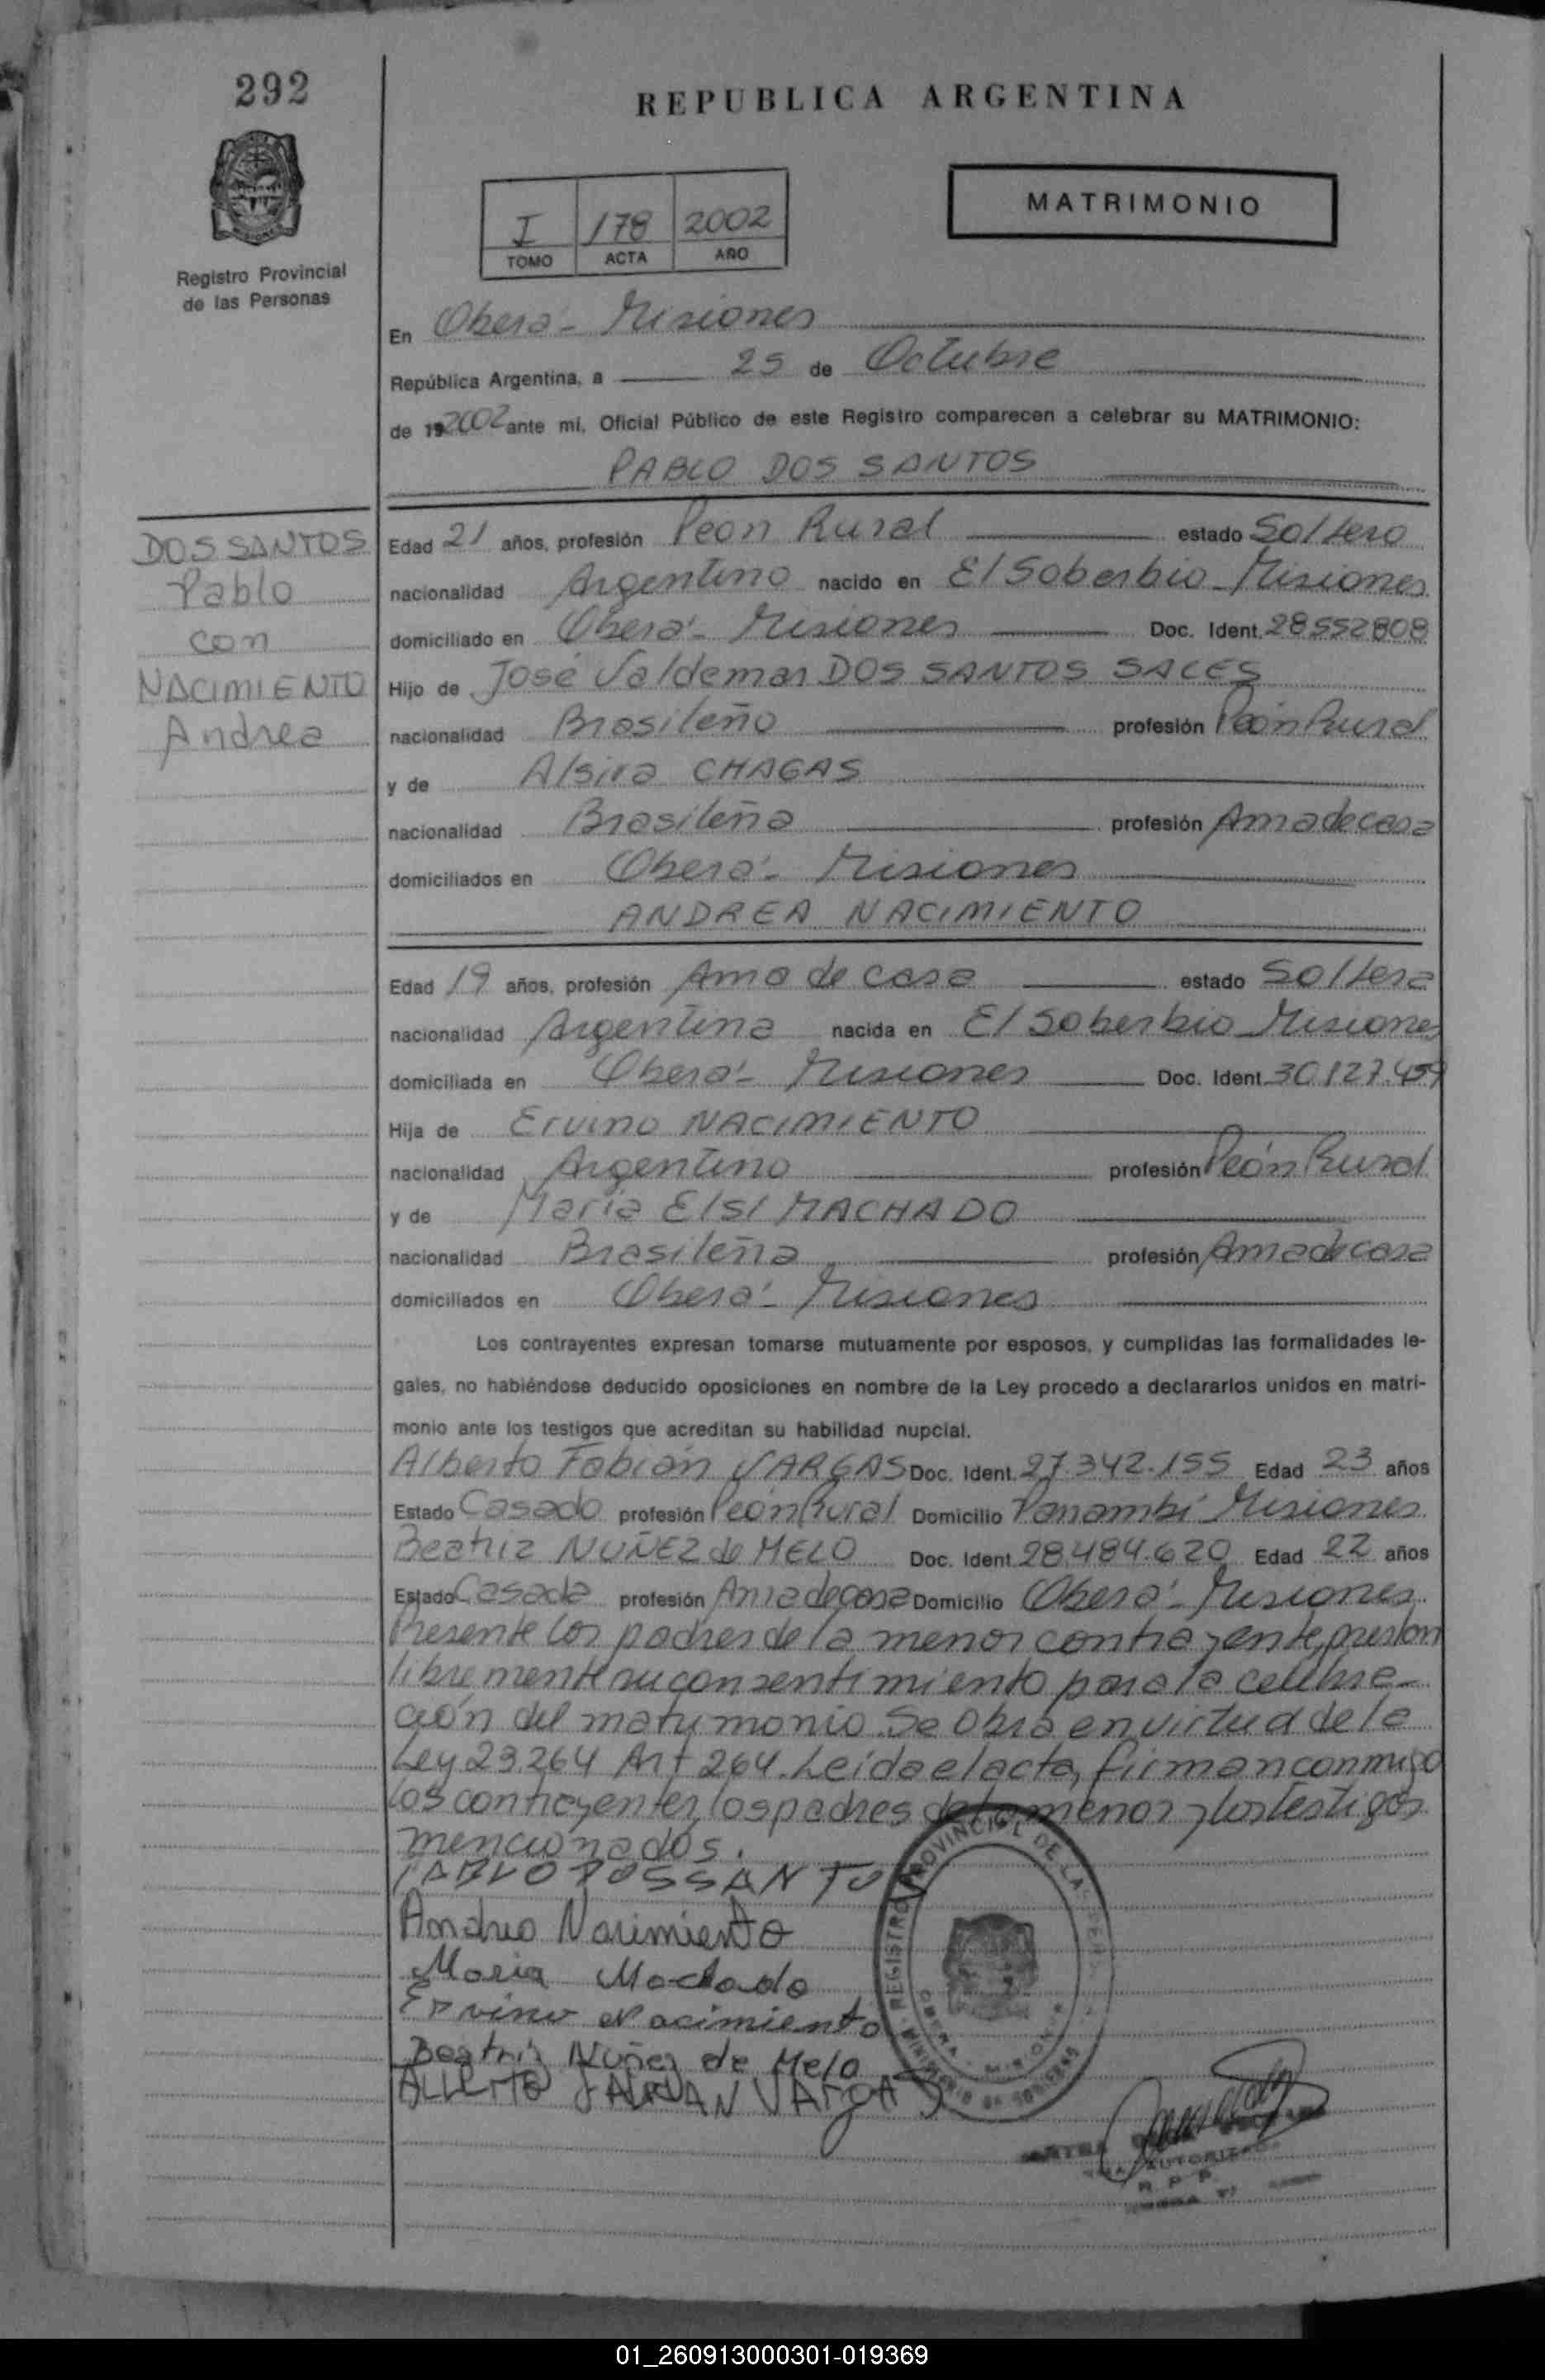 292
REPUBLICA ARGENTINA
Registro Provincial
de las Personas
I 178 2002
TOMO ACTA AÑO
MATRIMONIO
En Oberá - Misiones
República Argentina, a 25 de Octubre
de 192002 ante mí, Oficial Público de este Registro comparecen a celebrar su MATRIMONIO:
PABLO DOS SANTOS
DOS SANTOS
Pablo
con
NACIMIENTO
Andrea
Edad 21 años, profesión Peón Rural estado Soltero
nacionalidad Argentino nacido en El Soberbio - Misiones
domiciliado en Oberá - Misiones Doc. Ident. 28552808
Hijo de José Valdemar DOS SANTOS SACES
nacionalidad Brasileño profesión Peón Rural
y de Alsira CHAGAS
nacionalidad Brasileña profesión Ama de casa
domiciliados en Oberá - Misiones
ANDREA NACIMIENTO
Edad 19 años, profesión Ama de casa estado Soltera
nacionalidad Argentina nacida en El Soberbio - Misiones
domiciliada en Oberá - Misiones Doc. Ident. 30.127.459
Hija de Ervino NACIMIENTO
nacionalidad Argentino profesión Peón Rural
y de María Elsi MACHADO
nacionalidad Brasileña profesión Ama de casa
domiciliados en Oberá - Misiones
Los contrayentes expresan tomarse mutuamente por esposos, y cumplidas las formalidades le-
gales, no habiéndose deducido oposiciones en nombre de la Ley procedo a declararlos unidos en matri-
monio ante los testigos que acreditan su habilidad nupcial.
Alberto Fabián VARGAS Doc. Ident. 27.342.155 Edad 23 años
Estado Casado profesión Peón Rural Domicilio Panambí - Misiones
Beatriz NUÑEZ de MELO Doc. Ident. 28.484.620 Edad 22 años
Estado Casada profesión Ama de casa Domicilio Oberá - Misiones
Presente los padres de la menor contrayente, prestan
libremente su consentimiento para la celebra-
ción del matrimonio. Se obra en virtud de la
Ley 23.264 Art 264. Leída el acta, firman conmigo
los contrayentes, los padres de la menor y los testigos
mencionados.
PABLO DOS SANTO
Andrea Nacimiento
Maria Machado
Ervino Nacimiento
Beatriz Nuñez de Melo
ALBERTO FABIAN VARGAS
REGISTRO PROVINCIAL DE LAS PERSONAS
OBERA - MISIONES
MINISTERIO DE GOBIERNO
AUTORIZADA
R. P. P.
01_260913000301-019369